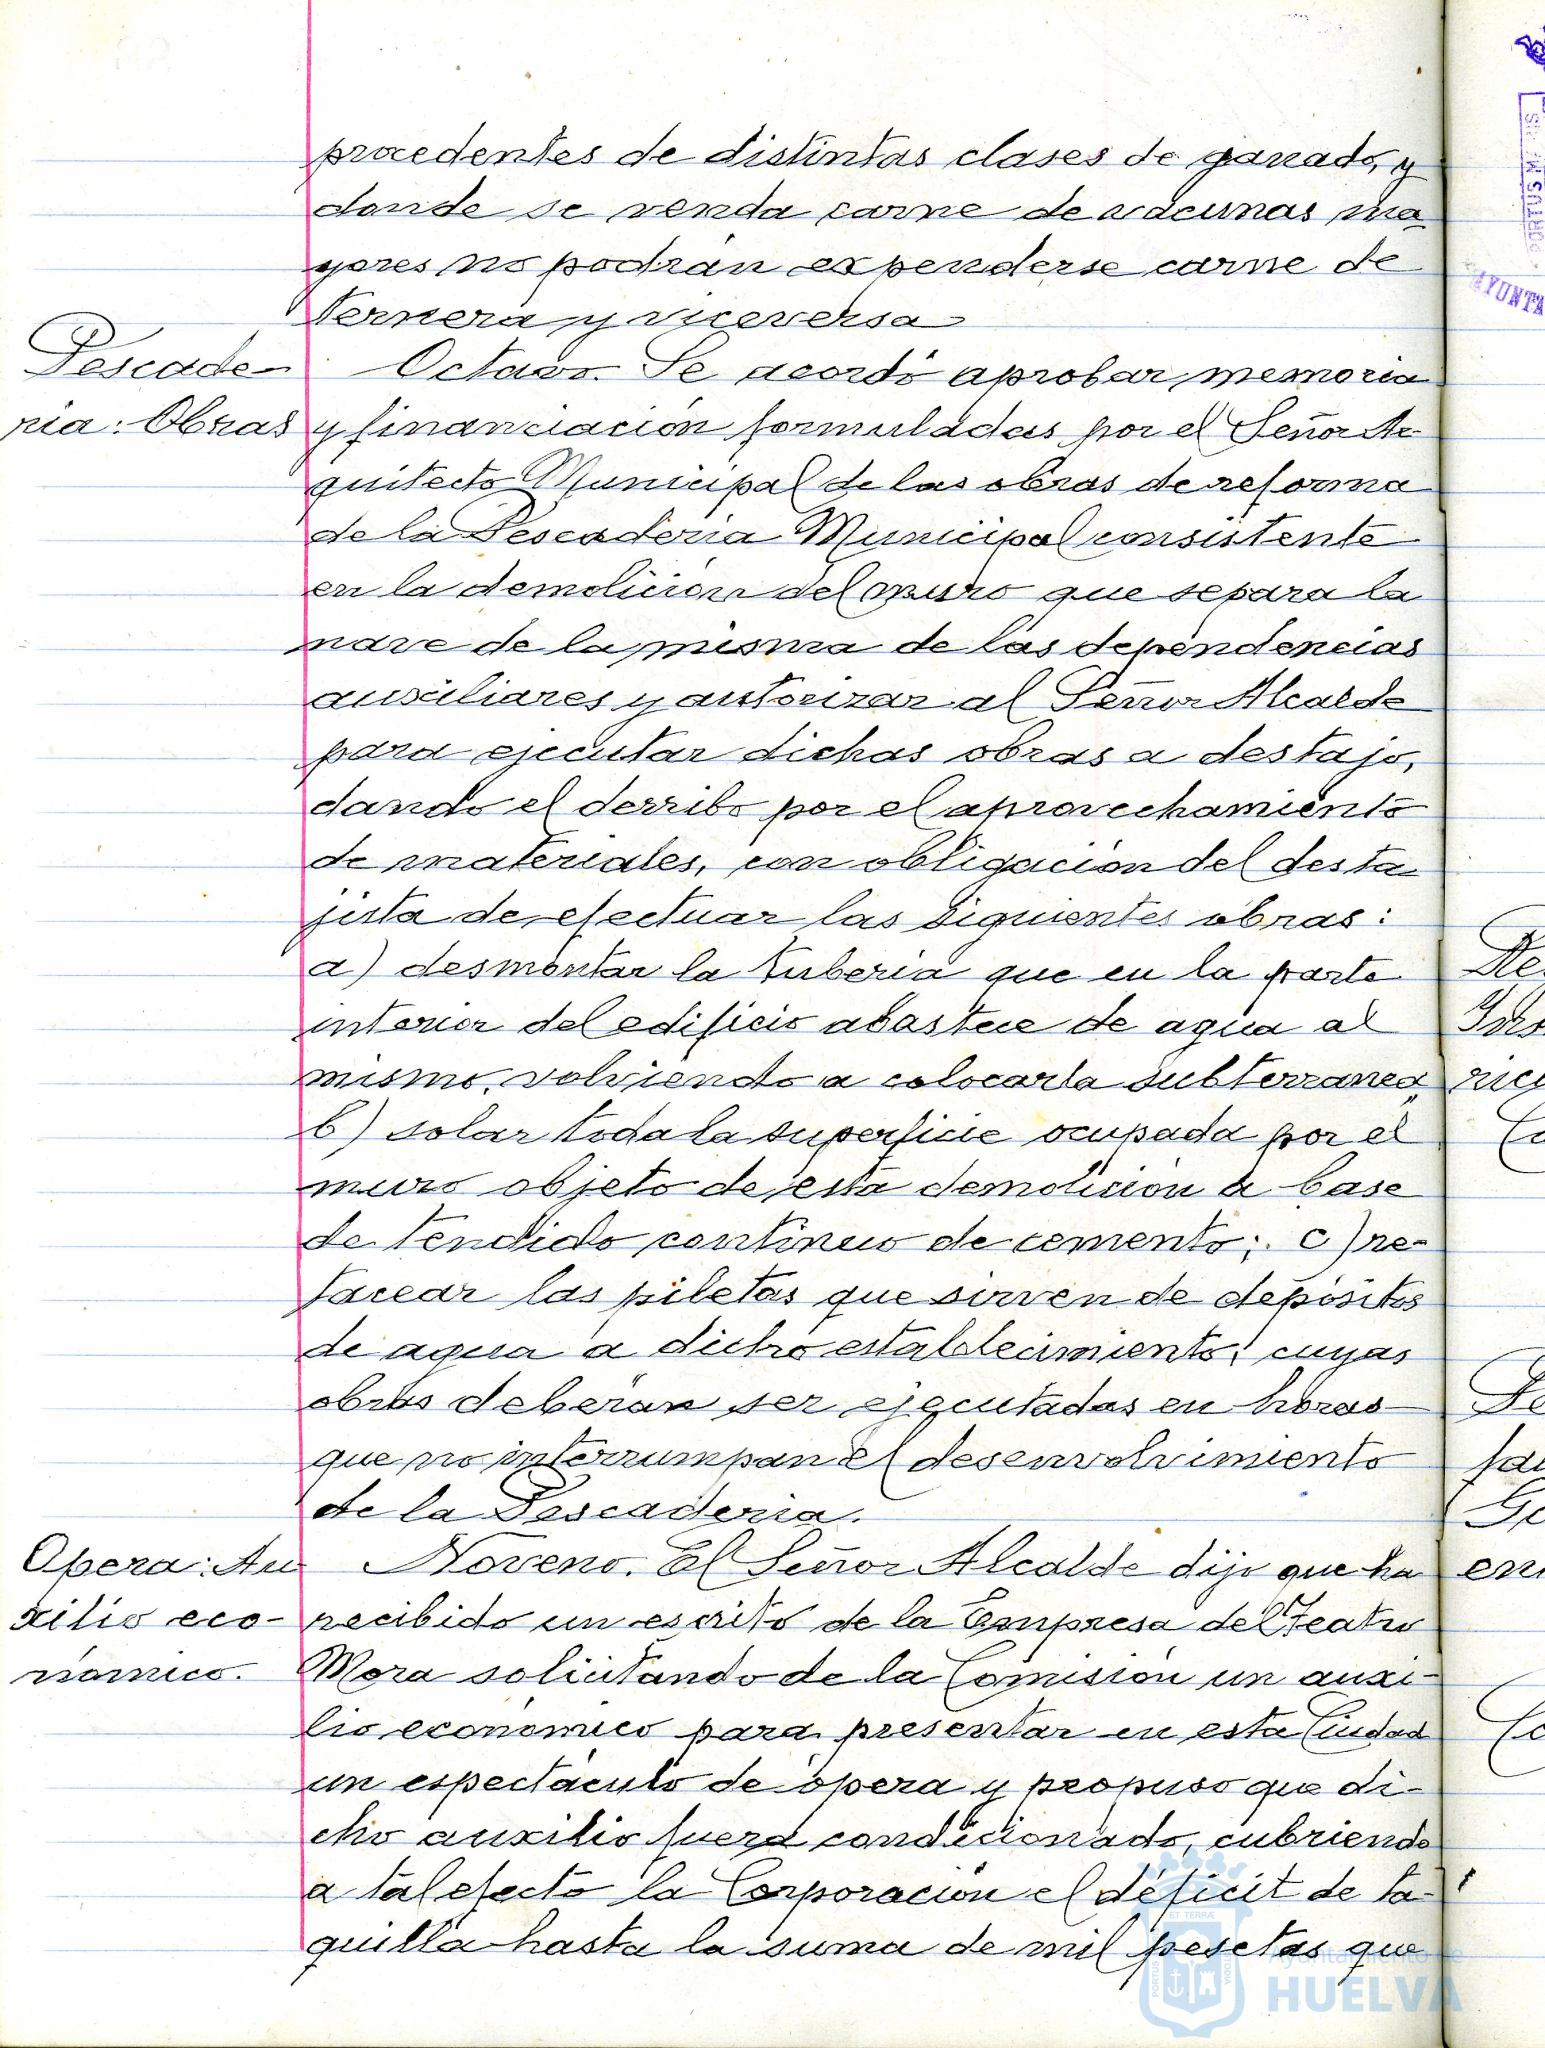 procedentes de distintas clases de ganado, y
donde se venda carne de vacunas ma
yores no podrán expenderse carne de
ternera y viceversa
Pescade-
ria: Obras
Octavo. Se acordó aprobar memoria
y financiación formuladas por el Señor Ar-
quitecto Municipal de las obras de reforma
de la Pescadería Municipal consistente
en la demolición del muro que separa la
nave de la misma de las dependencias
auxiliares y autorizar al Señor Alcalde
para ejecutar dichas obras a destajo,
dando el derribo por el aprovechamiento
de materiales, con obligación del desta-
jista de efectuar las siguientes obras:
a) desmontar la tubería que en la parte
interior del edificio abastece de agua al
mismo, volviendo a colocarla subterranea,
b) solar toda la superficie ocupada por el
muro objeto de esta demolición a base
de tendido continuo de cemento; c) re-
tacear las piletas que sirven de depósitos
de agua a dicho establecimiento; cuyas
obras deberán ser ejecutadas en horas
que no interrumpan el desenvolvimiento
de la Pescadería.
Opera: Au
xilio eco-
nómico.
Noveno. El Señor Alcalde dijo que ha
recibido un escrito de la Empresa del Teatro
Mora solicitando de la Comisión un auxi-
lio económico para presentar en esta Ciudad
un espectáculo de ópera y propuso que di-
cho auxilio fuera condicionado, cubriendo
a tal efecto la Corporación el déficit de ta-
quilla hasta la suma de mil pesetas que
Ayuntamiento de
HUELVA
PORTUS M
AYUNTA